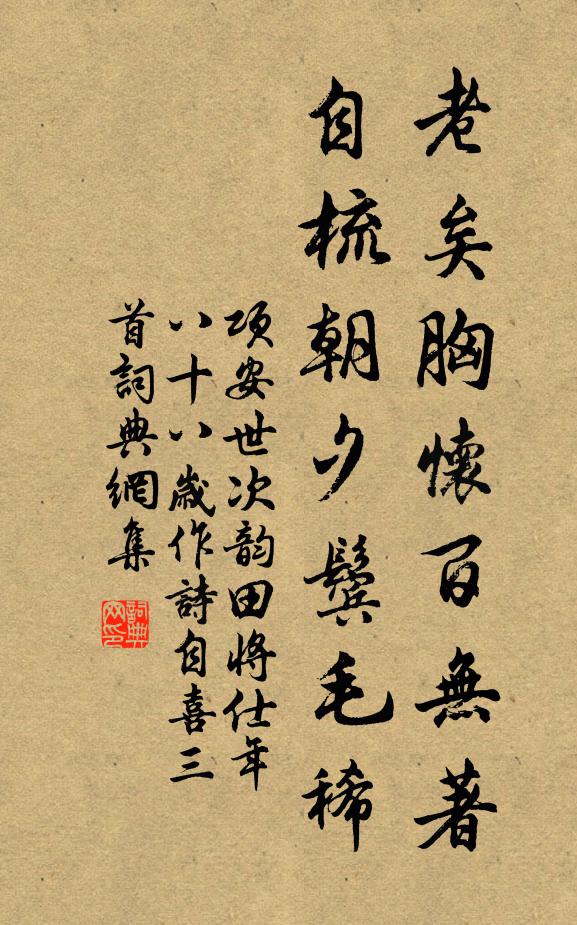 老矣胸懷百無著
自梳朝夕鬢毛稀
項安世次韵田將仕年
八十八歲作詩自喜三
首詞典網集
詞典
网印